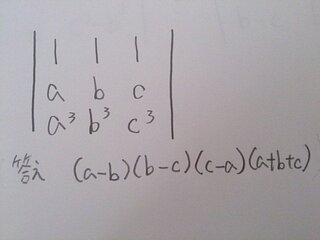 | 1 1 1 |
| a b c |
| a³ b³ c³ |
答え (a-b)(b-c)(c-a)(a+b+c)